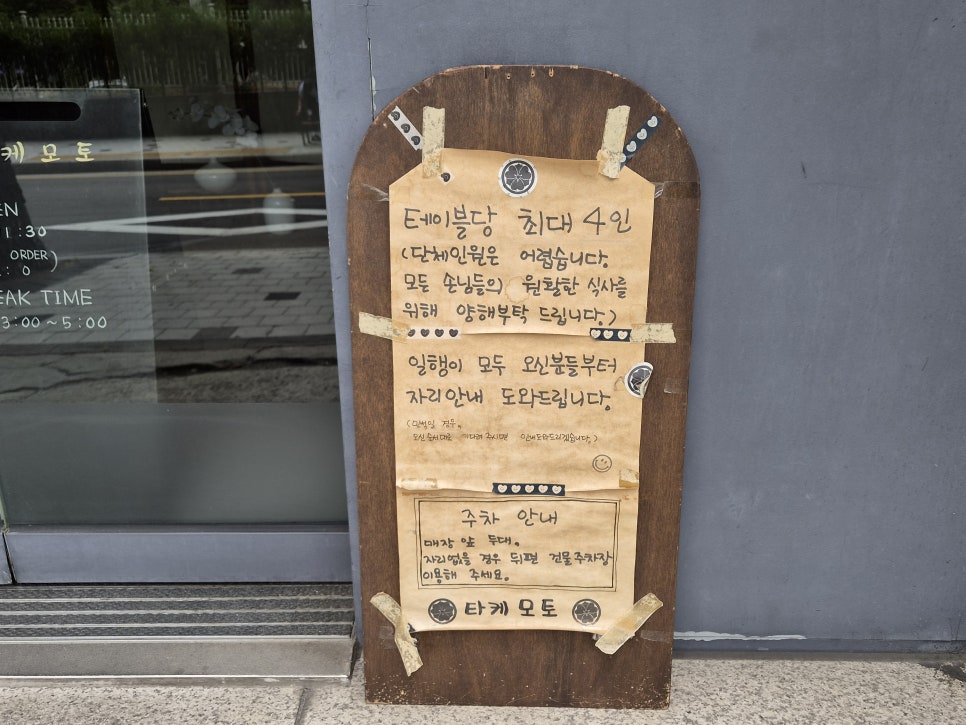 케모토
EN
1:30
ORDER)
EAK TIME
3:00~5:00
테이블당 최대 4인
(단체인원은 어렵습니다.
모든 손님들의 원활한 식사를
위해 양해부탁 드립니다.)
일행이 모두 오신분들부터
자리안내 도와드립니다.
(만석일 경우,
오신 순서대로 기다려 주시면 안내도와드리겠습니다.)
주차 안내
매장 앞 두대.
자리없을 경우 뒤편 건물주차장
이용해 주세요.
타케모토